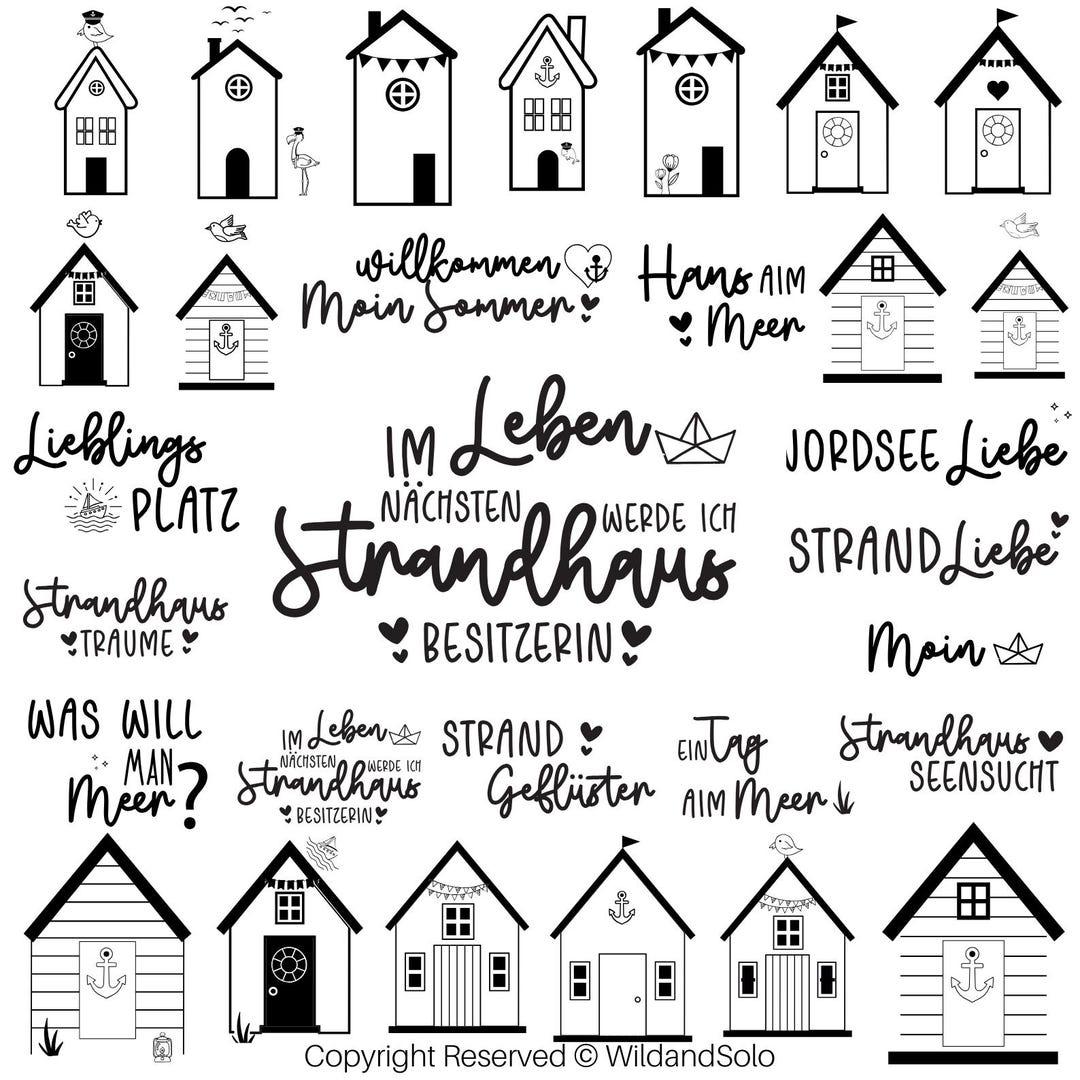 willkommen
Moin Sommer
Hans AIM
Meer
Lieblings
PLATZ
IM Leben
NÄCHSTEN
WERDE ICH
Strandhaus
BESITZERIN
JORDSEE Liebe
STRAND Liebe
Strandhaus
TRÄUME
Moin
WAS WILL
MAN
Meer?
IM Leben
NÄCHSTEN
WERDE ICH
Strandhaus
BESITZERIN
STRAND
Geflüster
EIN Tag
AIM Meer
Strandhaus
SEENSUCHT
Copyright Reserved © WildandSolo